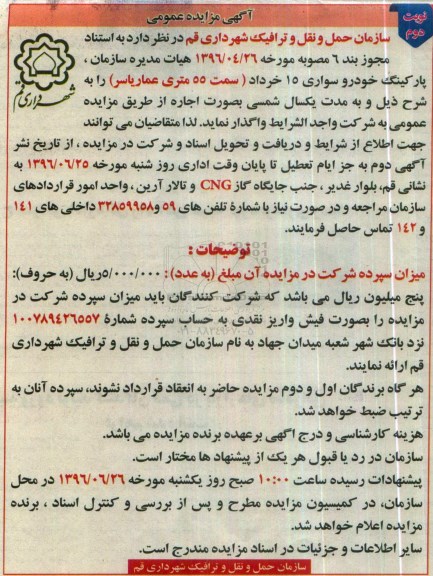 آگهی مزایده عمومی
نوبت دوم
سازمان حمل و نقل و ترافیک شهرداری قم در نظر دارد به استناد
مجوز بند ۶ مصوبه مورخه ۱۳۹۶/۰۴/۲۶ هیات مدیره سازمان ،
پارکینگ خودرو سواری ۱۵ خرداد ( سمت ۵۵ متری عماریاسر) را به
شرح ذیل و به مدت یکسال شمسی بصورت اجاره از طریق مزایده
عمومی به شرکت واجد الشرایط واگذار نماید. لذا متقاضیان می توانند
جهت اطلاع از شرایط و دریافت و تحویل اسناد و شرکت در مزایده ، از تاریخ نشر
آگهی دوم به جز ایام تعطیل تا پایان وقت اداری روز شنبه مورخه ۱۳۹۶/۰۶/۲۵ به
نشانی قم، بلوار غدیر ، جنب جایگاه گاز CNG و تالار آرین ، واحد امور قراردادهای
سازمان مراجعه و در صورت نیاز با شمارۀ تلفن های ۵۹ و۳۲۸۵۹۹۵۸ داخلی های ۱۴۱
و ۱۴۲ تماس حاصل فرمایند.
شهرداری قم
توضیحات :
میزان سپرده شرکت در مزایده آن مبلغ (به عدد): ۵/۰۰۰/۰۰۰ریال (به حروف):
پنج میلیون ریال می باشد که شرکت کنندگان باید میزان سپرده شرکت در
مزایده را بصورت فیش واریز نقدی به حساب سپرده شمارۀ ۱۰۰۷۸۹۴۲۶۵۵۷
نزد بانک شهر شعبه میدان جهاد به نام سازمان حمل و نقل و ترافیک شهرداری
قم ارائه نمایند.
هر گاه برندگان اول و دوم مزایده حاضر به انعقاد قرارداد نشوند، سپرده آنان به
ترتیب ضبط خواهد شد.
هزینه کارشناسی و درج آگهی برعهده برنده مزایده می باشد.
سازمان در رد یا قبول هر یک از پیشنهاد ها مختار است.
پیشنهادات رسیده ساعت ۱۰:۰۰ صبح روز یکشنبه مورخه ۱۳۹۶/۰۶/۲۶ در محل
سازمان، در کمیسیون مزایده مطرح و پس از بررسی و کنترل اسناد ، برنده
مزایده اعلام خواهد شد.
سایر اطلاعات و جزئیات در اسناد مزایده مندرج است.
سازمان حمل و نقل و ترافیک شهرداری قم